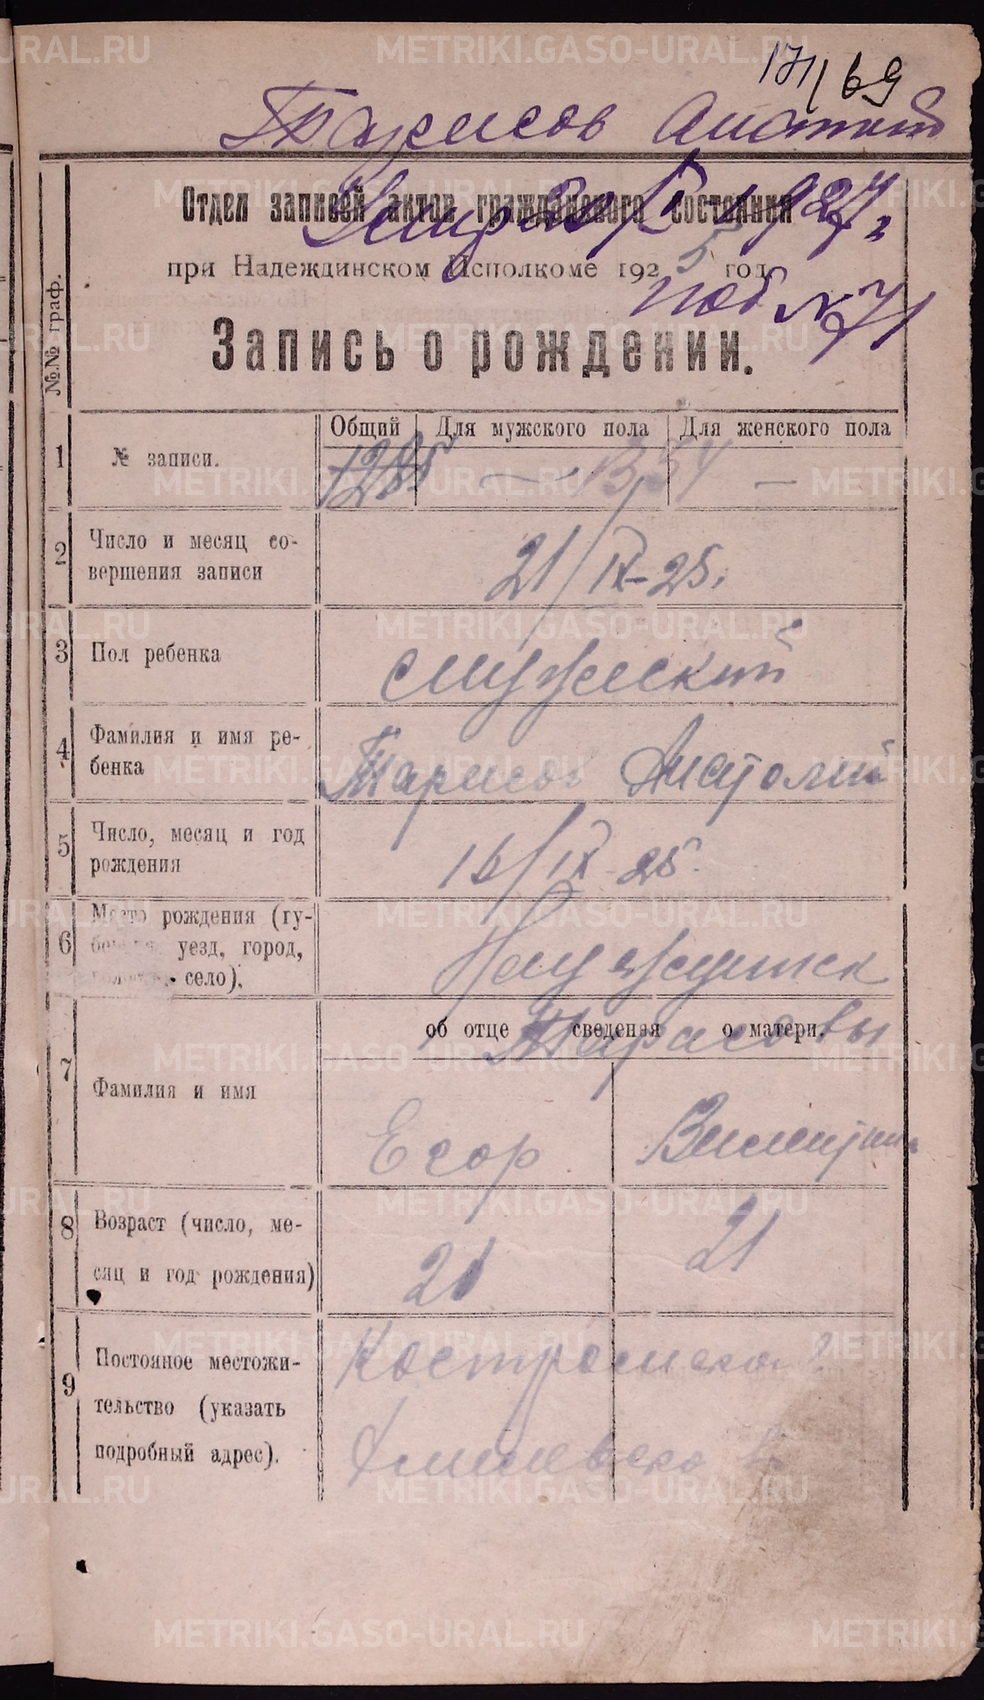 171/69
Тарисов Анатолий
Умер 20/II 1927 г.
Отдел записей актов гражданского состояния
при Надеждинском Исполкоме 1925 год
поб №71
Запись о рождении.
№№ граф.
Общий Для мужского пола Для женского пола
1 № записи. — —
2 Число и месяц со-
вершения записи
21/IX-25.
3 Пол ребенка мужский
4 Фамилия и имя ре-
бенка
Тарисов Анатолий
5 Число, месяц и год
рождения
16/IX-25.
6 Место рождения (гу-
уезд, город,
село).
7 об отце сведения о матери.
Тарасовы
Фамилия и имя
Егор
8 Возраст (число, ме-
сяц и год рождения)
21 21
9 Постояное местожи-
тельство (указать
подробный адрес).
METRIKI.GASO-URAL.RU